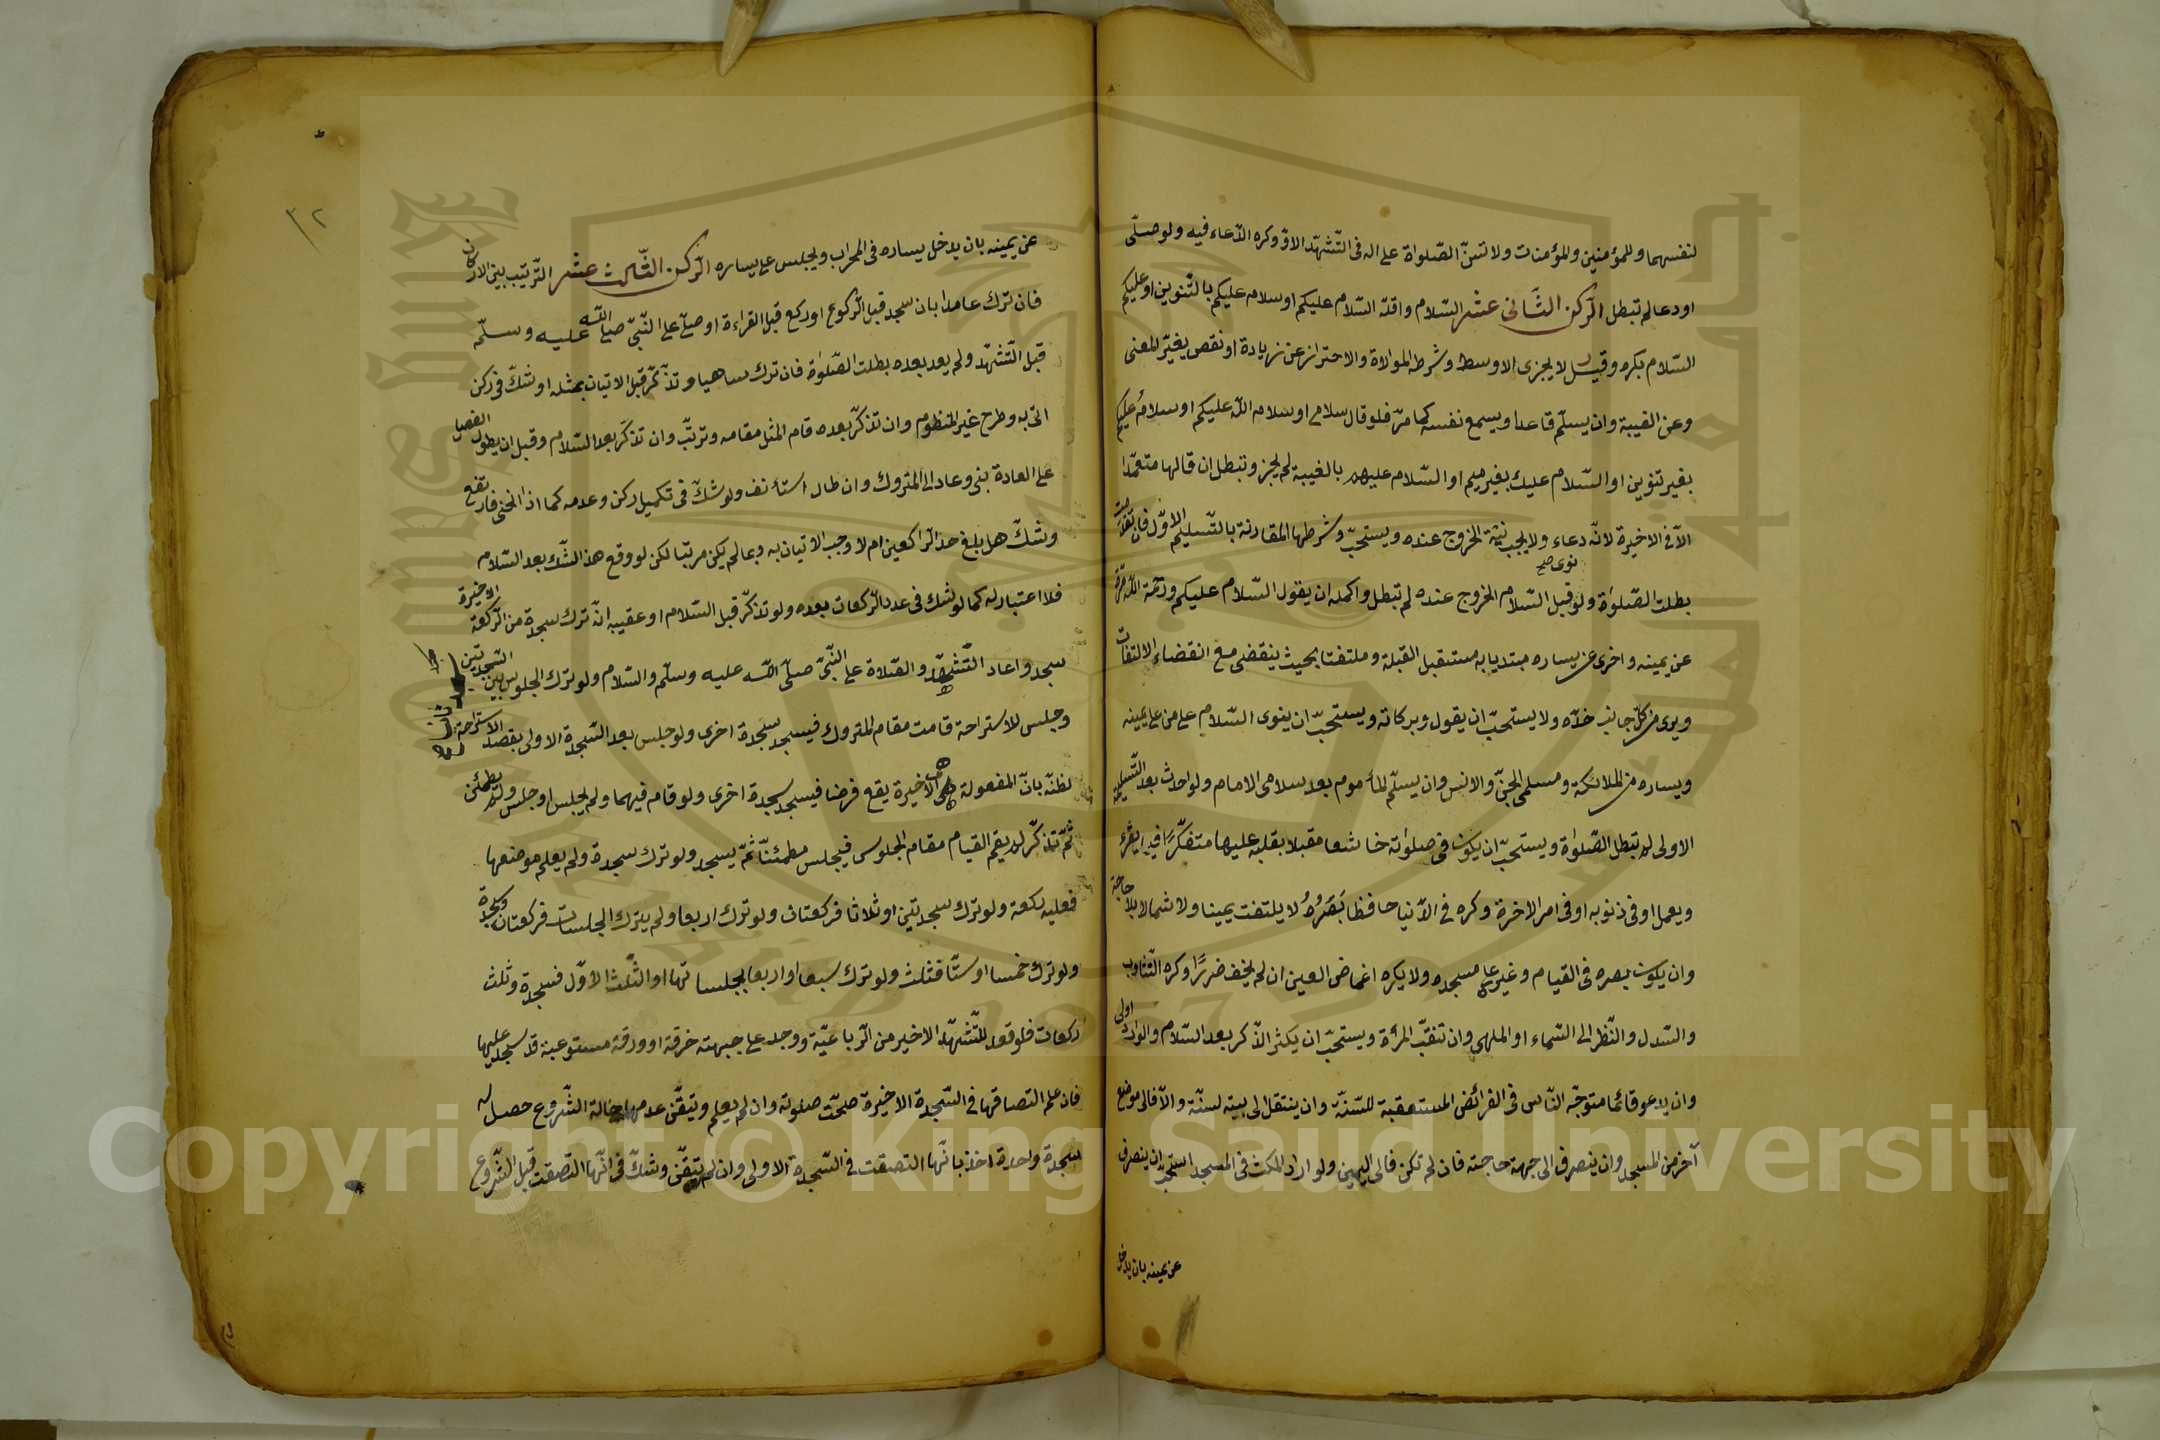 لنفسهما وللمؤمنين والمؤمنات ولا تسنّ الصّلواة على اله فى التّشهّد الاوّل وكره الدّعاء فيه ولو صلّى
او دعا لم تبطل الرّكن الثّانى عشر السّلام واقلّه السّلام عليكم او سلام عليكم بالتّنوين او عليكم
السّلام بكره وقيل لا يجزى الاوسط وشرطه الموالاة والاحتراز عن زيادة او نقص يغيّر المعنى
وعن الغيبة وان يسلّم قاعدا ويسمع نفسه كما مرّ فلو قال سلامى او سلام الله عليكم او سلامُ عليكم
بغير تنوين او السّلام عليك بغير ميم او السّلام عليهم بالغيبة لم يجز وتبطل ان قالها متعمّدا
الّا فى الاخيرة لانّه دعاء ولا يجب نيّة الخروج عنده ويستحبّ وشرطها المقارنة بالتّسليم الاوّل فان تقدّمت
بطلت الصّلواة ولو نوى قبل السّلام الخروج عنده لم تبطل واكمله ان يقول السّلام عليكم ورحمة الله مرّة
عن يمينه واخرى عن يساره مبتديا به مستقبل القبلة وملتفتا بحيث ينقضى مع انقضاء الالتفات
ويرى من كلّ جانب خدّه ولا يستحبّ ان يقول وبركاته ويستحبّ ان ينوى السّلام على من على يمينه
ويساره من الملائكة ومسلمى الجنّ والانس وان يسلّم المأموم بعد سلامى الامام ولو احدث بعد التّسليمة
الاولى لم تبطل الصّلوٰة ويستحبّ ان يكون فى صلوٰته خاشعا مقبلا بقلبه عليها متفكّرًا فيما يقرء
ويعمل او فى ذنوبه او فى امر الاخرة وكره فى الدّنيا حافظا بَصَرُهُ لا يلتفت يمينا ولا شمالا بلا حاجة
وان يكون بصره فى القيام وغيره على مسجده ولا يكره اغماض العين ان لم يخف ضررًا وكره التثاوب
والسّدل والنّظر الى السّماء او الملهى وان تنقّب المرأة ويستحبّ ان يكثر الذّكر بعد السّلام والوارد اولى
وان يدعو قائما متوجّه النّاس فى الفرائض المستعقبة للسّنّة وان ينتقل الى بيته لسنّة والّا فالى موضع
آخر من المسجد وان ينصرف الى جهة حاجته فان لم تكن فالى اليمين ولو اراد المكث فى المسجد استحبّ ان ينصرف
عن يمينه بان يدخل
٣٢
عن يمينه بان يدخل يساره فى المحراب ويجلس على يساره الرّكن الثّالث عشر التّرتيب بين الاركان
فان ترك عامدا بان سجد قبل الرّكوع او ركع قبل القراءة او صلّى على النّبىّ صلى الله عليه وسلّم
قبل التّشهّد ولم يعد بعده بطلت الصّلوٰة فان ترك ساهيا وتذكّر قبل الاتيان بمثله او شكّ فى ركن
اتى به وطرح غير المنظوم وان تذكّر بعده قام المثل مقامه وترتّب وان تذكّر بعد السّلام وقبل ان يطول الفصل
على العادة بنى وعاد الى المتروك وان طال استأنف ولو شكّ فى تكميل ركن وعدمه كما اذا انحنى فارتفع
وشكّ هل بلغ حدّ الرّاكعين ام لا وجب الاتيان به وبما لم يكن مرتبا لكن لو وقع هذا الشّك بعد السّلام
فلا اعتبار له كما لو شك فى عدد الرّكعات بعده ولو تذكّر قبل السّلام او عقيبه انّه ترك سجدة من الرّكعة الاخيرة
سجد واعاد التّشهّد والصّلاة على النّبىّ صلّى الله عليه وسلّم والسّلام ولو ترك الجلوس بين السّجدتين
وجلس للاستراحة قامت مقام المتروك فيسجد سجدة اخرى ولو جلس بعد السّجدة الاولى بقصد الاستراحة
لظنّه بانّ المفعولة هى الاخيرة يقع فرضا فيسجد سجدة اخرى ولو قام فيهما ولم يجلس او جلس ولم يطمئن
ثمّ تذكّر لم يقم القيام مقام الجلوس فيجلس مطمئنّا ثمّ يسجد ولو ترك سجدة ولم يعلم موضعها
فعليه ركعة ولو ترك سجدتين او ثلاثا فركعتان ولو ترك اربعا ولم يترك الجلسات فركعتان وسجدة
ولو ترك خمسا او ستّا فثلث ولو ترك سبعا او اربعا بجلساتها او الثّلث الاوّل فسجدة وثلث
ركعات فلو قعد للتّشهّد الاخير من الرّباعيّة ووجد على جبهته خرقة او ورقة مستوعبة قد سجد عليها
فان علم التصاقها فى السّجدة الاخيرة صحّت صلوته وان لم يعلم وتيقّن عدمها حالة الشّروع حصل له
سجدة واحدة اخذ بانّها التصقت فى السّجدة الاولى وان لم يتيقّن وشكّ فى انّها التصقت قبل الشّروع
Copyright © King Saud University